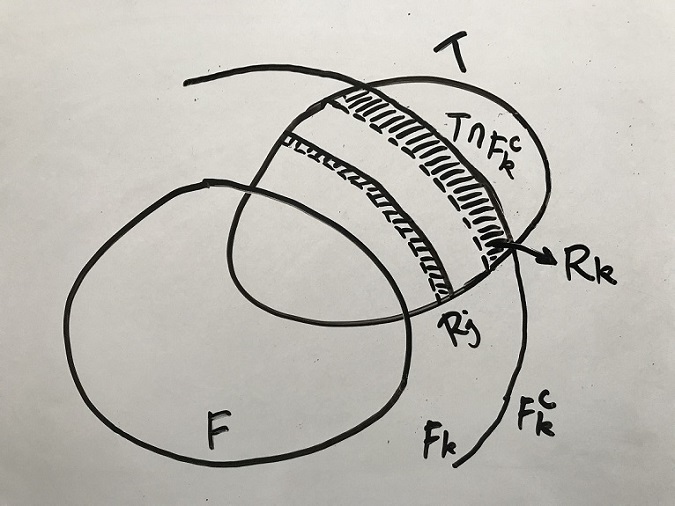 T
T∩F_k^c
R_k
R_j
F
F_k
F_k^c